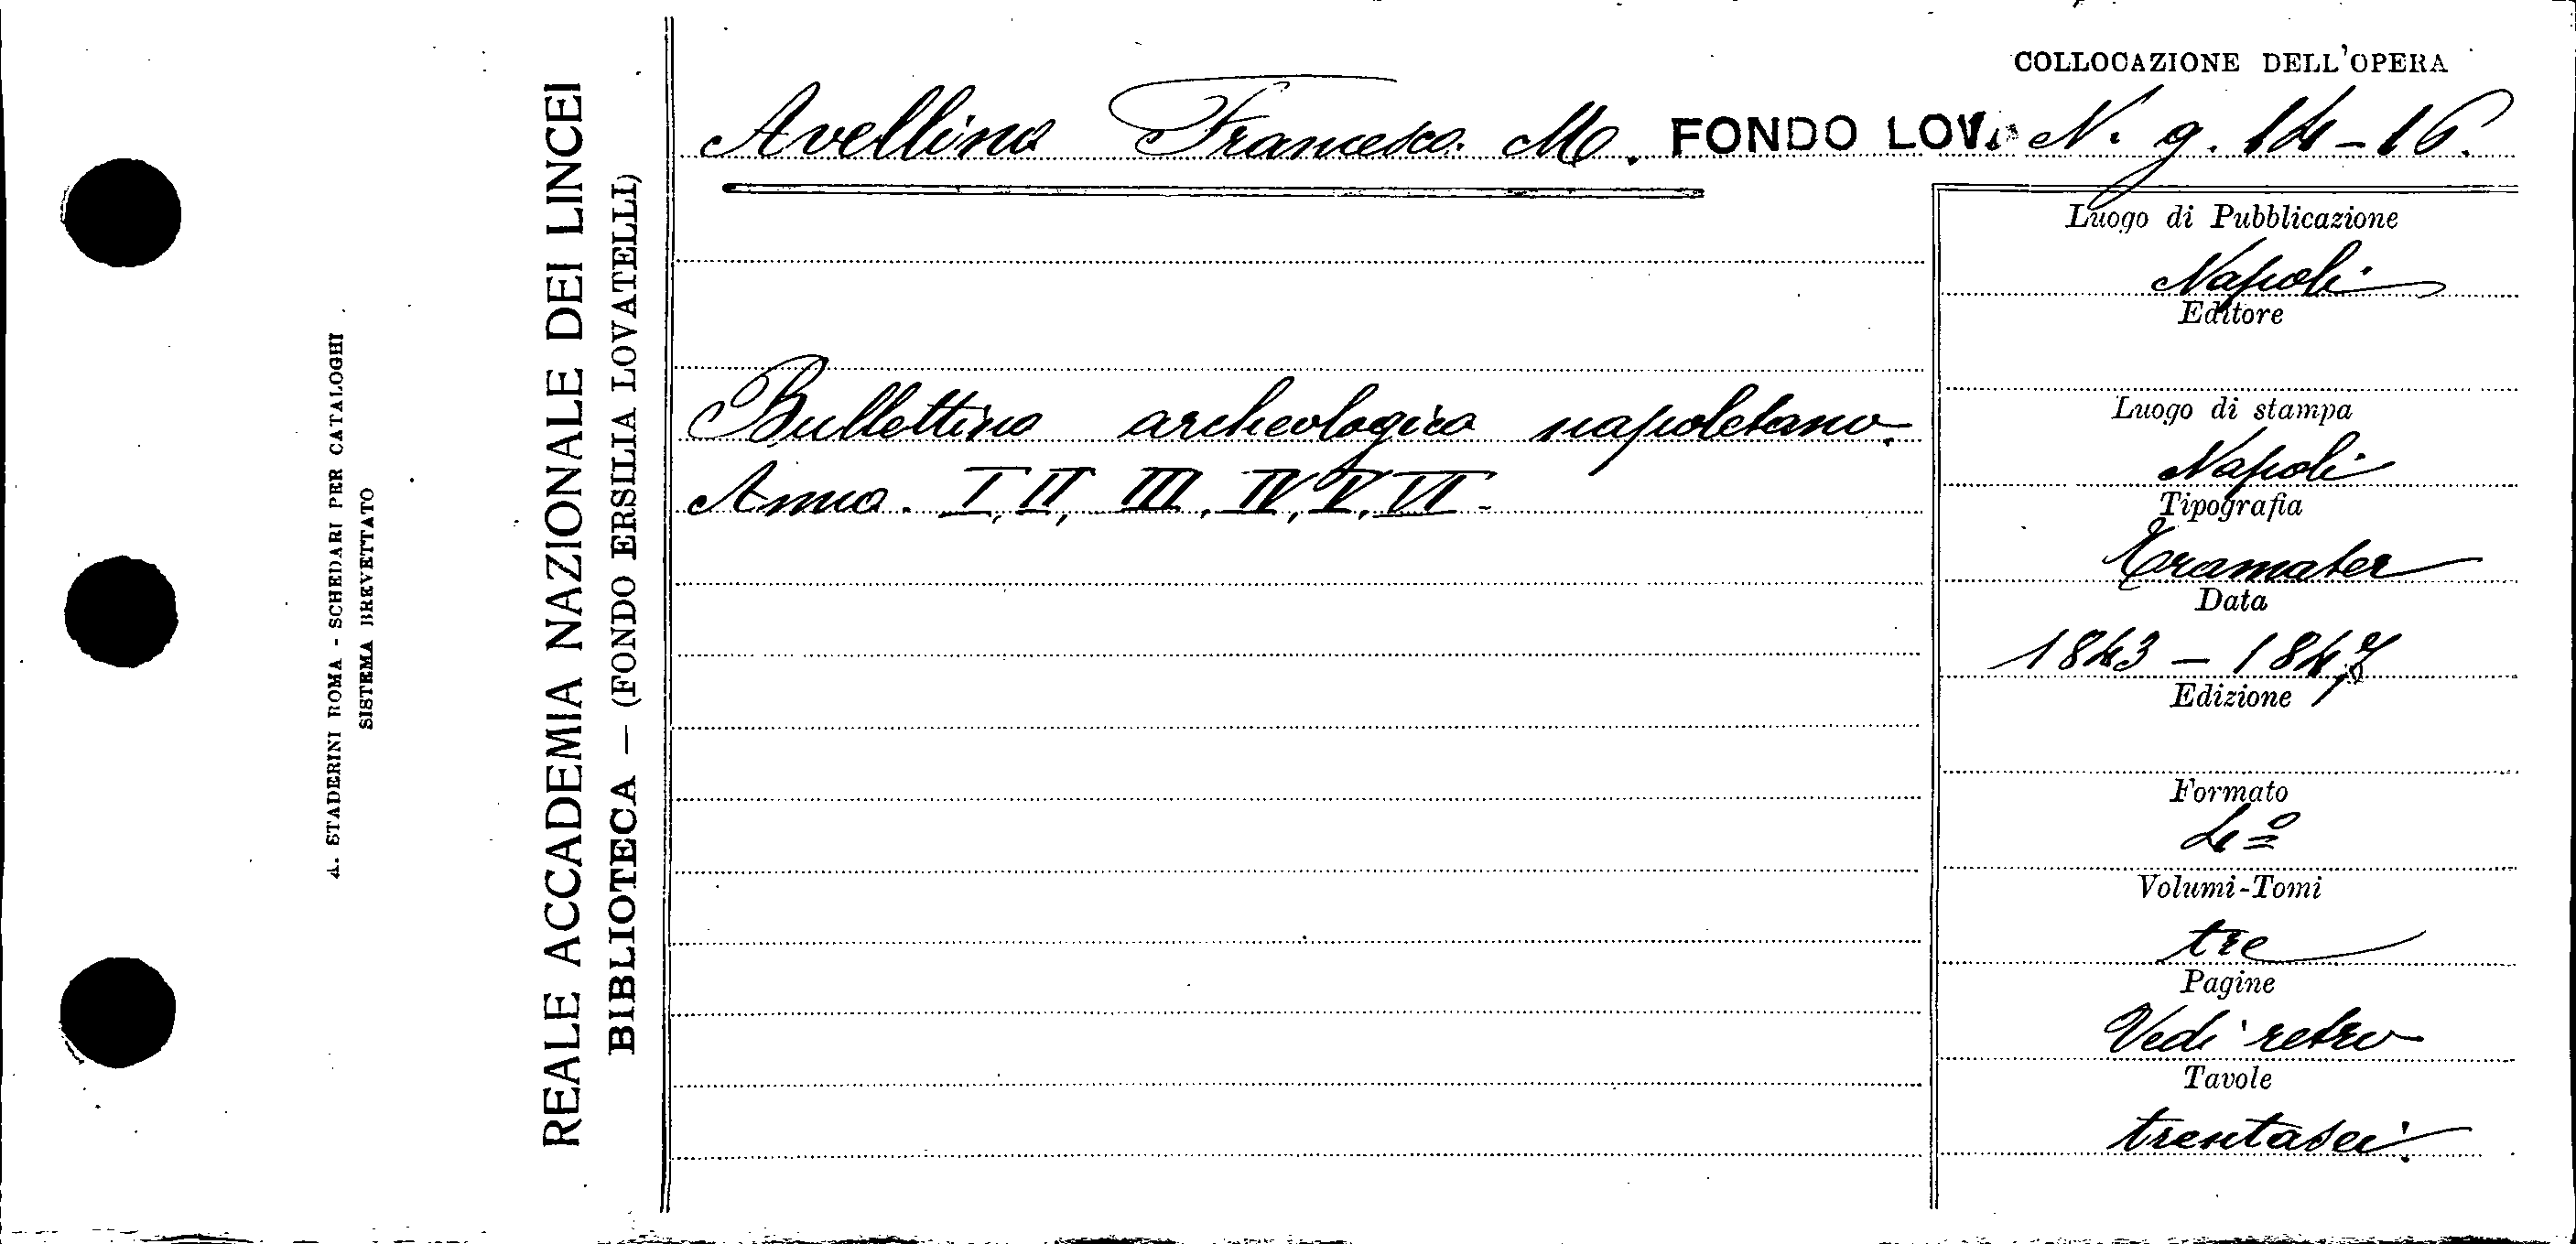 A. STADERINI ROMA - SCHEDARI PER CATALOGHI
SISTEMA BREVETTATO
REALE ACCADEMIA NAZIONALE DEI LINCEI
BIBLIOTECA — (FONDO ERSILIA LOVATELLI)
COLLOCAZIONE DELL'OPERA
Avellino Francesco. M. FONDO LOV. N. g. 14-16.
Bullettino archeologico napoletano.
Anno. I, II, III, IV, V, VI.
Luogo di Pubblicazione
Napoli
Editore
Luogo di stampa
Napoli
Tipografia
Tramater
Data
1843 - 1847
Edizione
Formato
4º
Volumi-Tomi
tre
Pagine
Vedi retro
Tavole
trentasei.